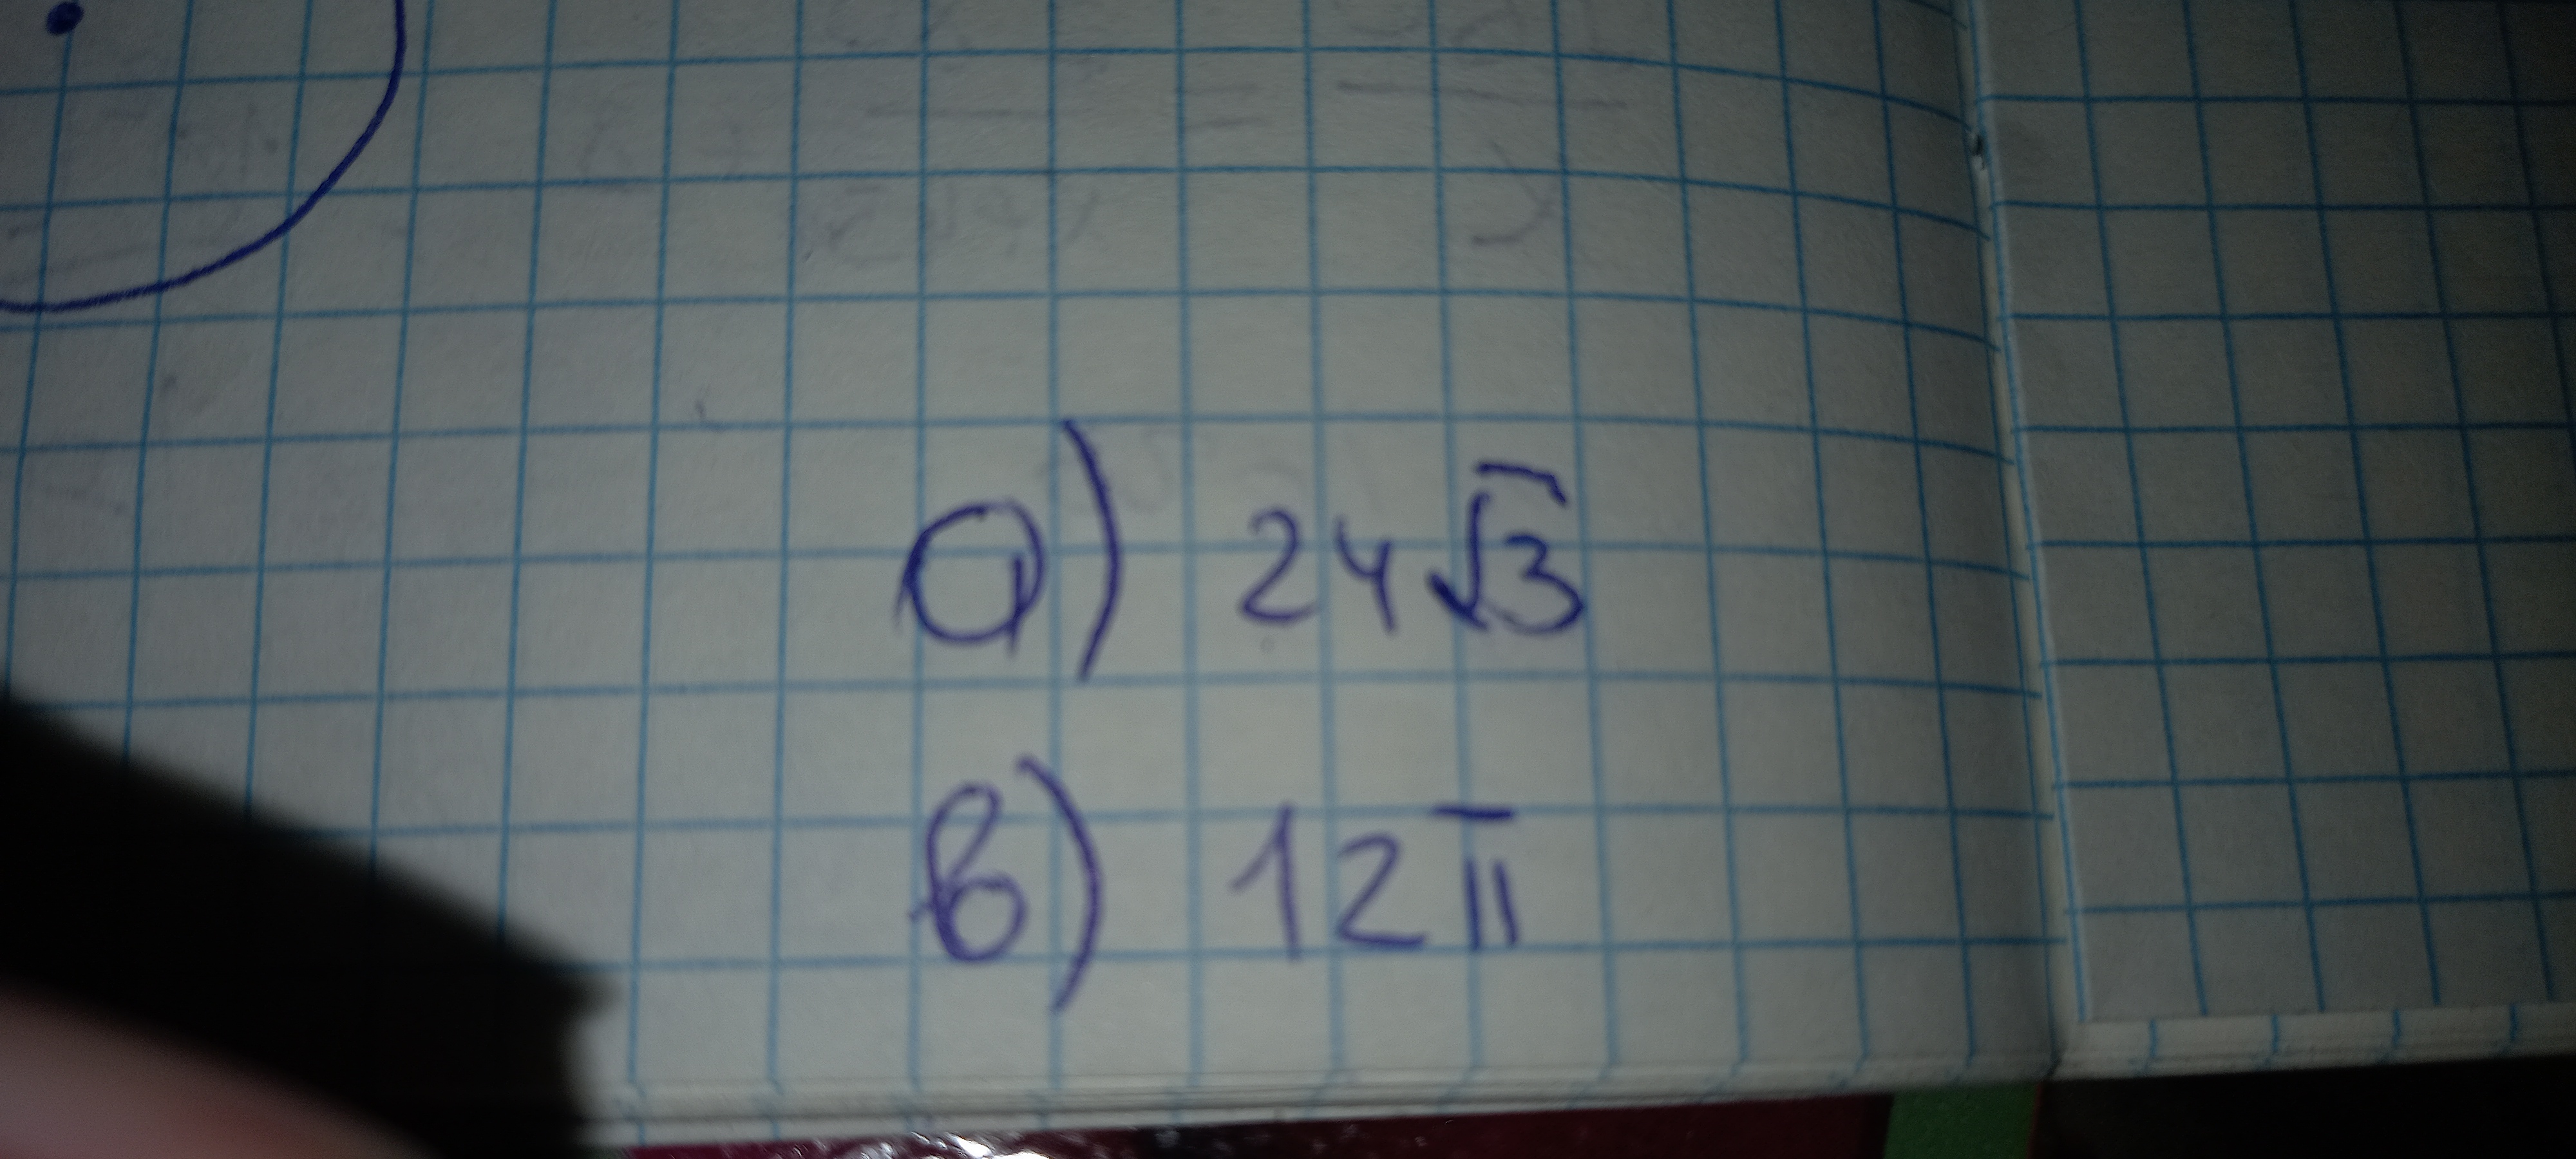 а) 24√3
в) 12π